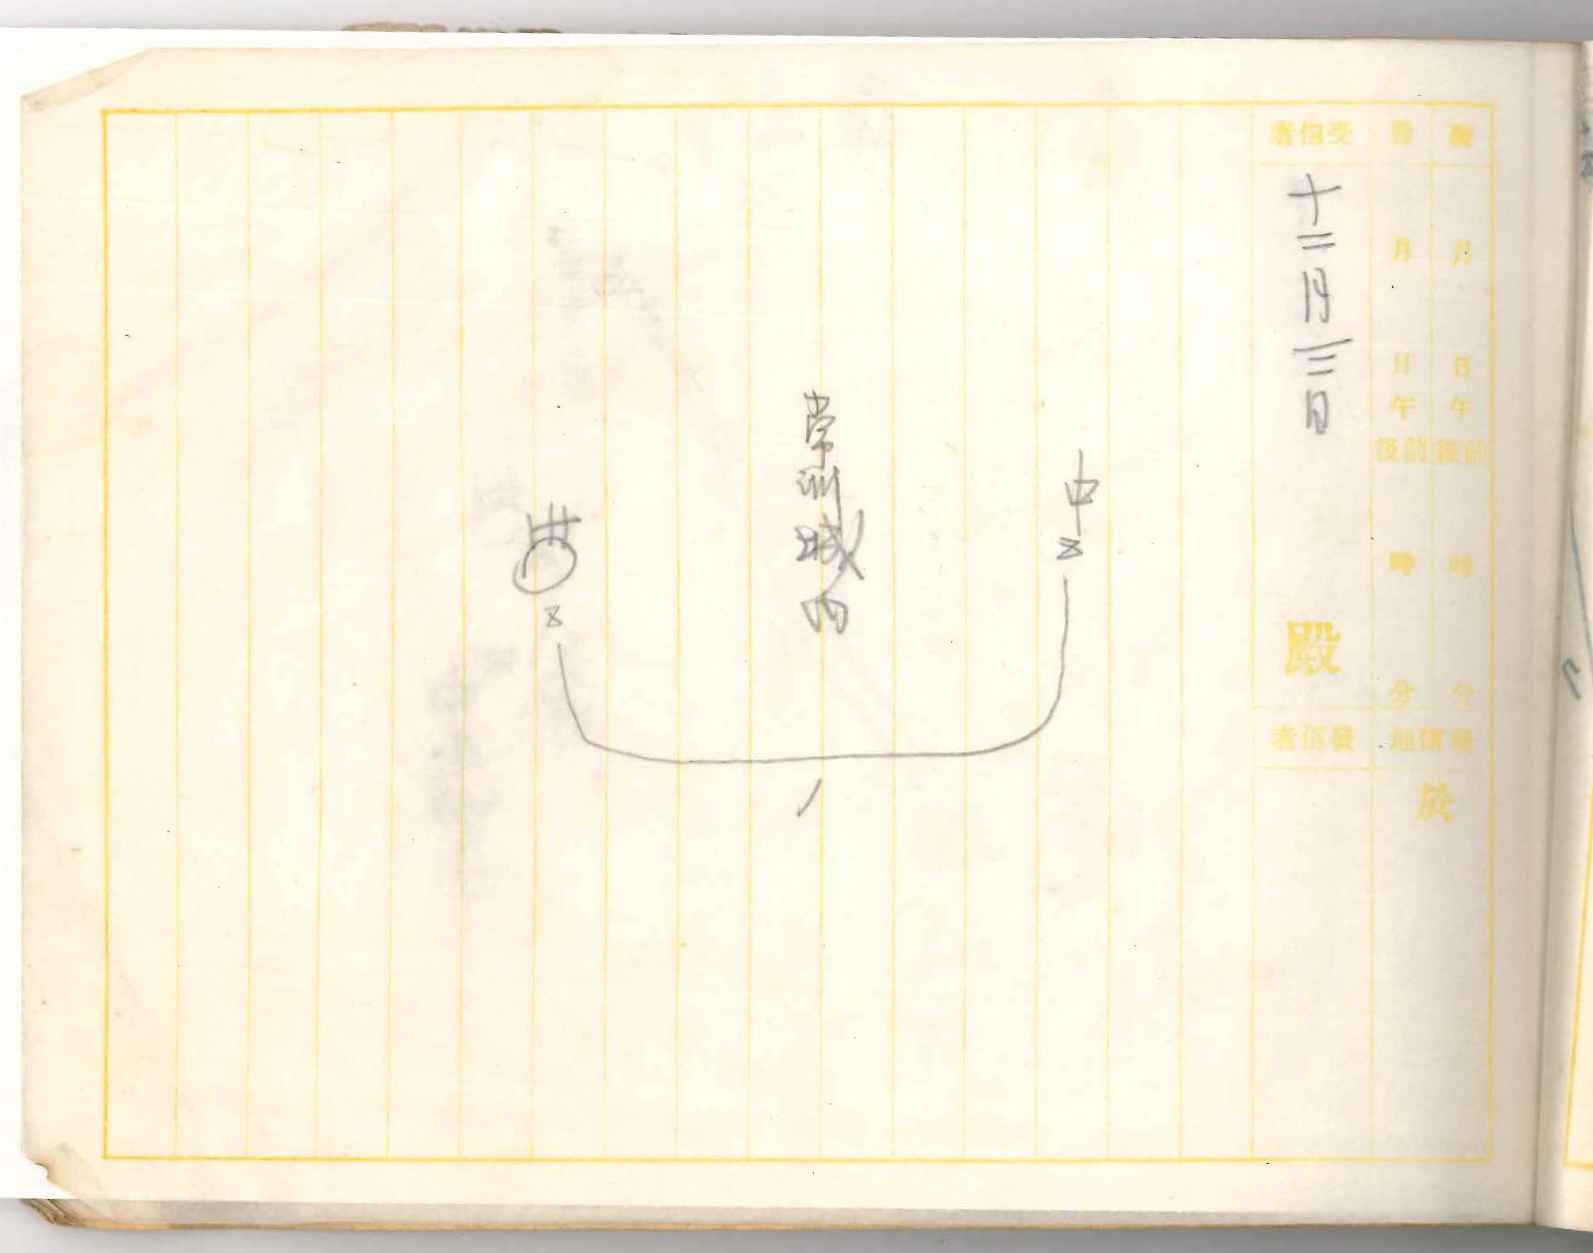 月 日 午 前後 時 分
月 日 午 前後 時 分
發信地
於
受信者
十二月三日
殿
發信者
中
常州城内